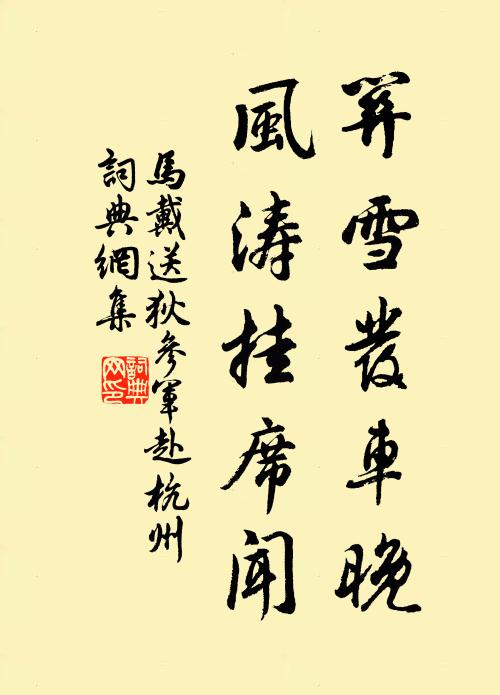 關雪發車晚
風濤挂席聞
馬戴送狄參軍赴杭州
詞典網集
詞典
网印